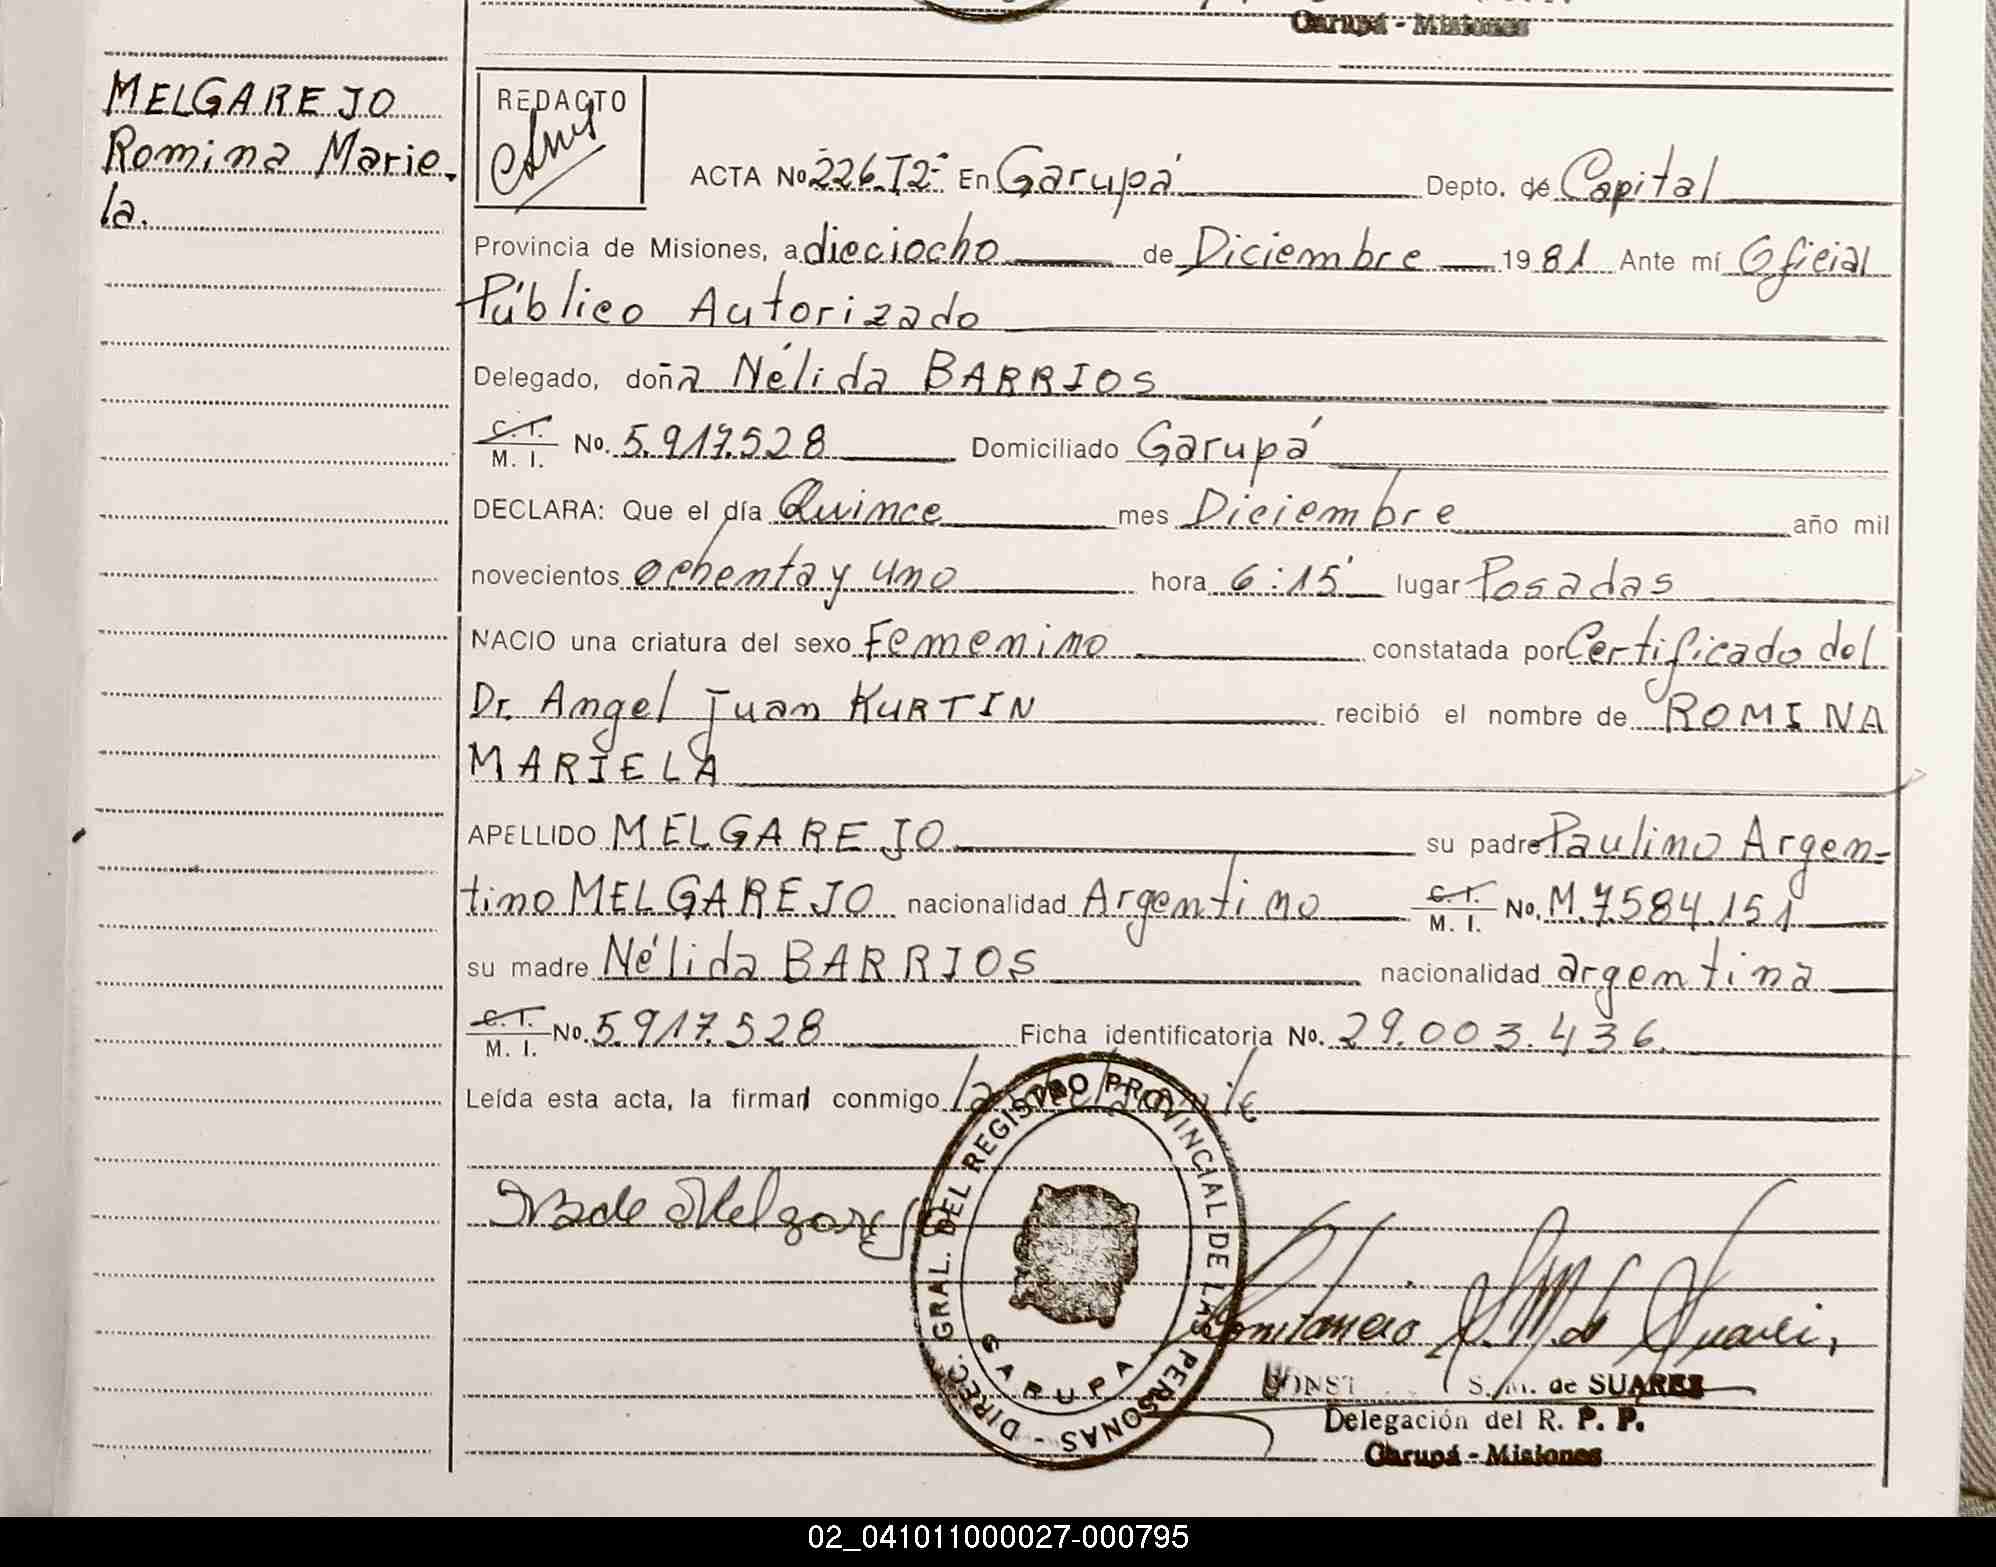 Garupá - Misiones
MELGAREJO
Romina Marie-
la.
REDACTO
ACTA No 226.T2- En Garupá Depto. de Capital
Provincia de Misiones, a dieciocho de Diciembre 1981 Ante mí Oficial
Público Autorizado
Delegado, doña Nélida BARRIOS
C. I.
M. I. No. 5.917.528 Domiciliado Garupá
DECLARA: Que el día Quince mes Diciembre año mil
novecientos ochenta y uno hora 6:15' lugar Posadas
NACIO una criatura del sexo Femenino constatada por Certificado del
Dr. Angel Juan KURTIN recibió el nombre de ROMINA
MARIELA
APELLIDO MELGAREJO su padre Paulino Argen=
tino MELGAREJO nacionalidad Argentino C. I.
M. I. No. M.7.584.151
su madre Nélida BARRIOS nacionalidad argentina
C. I.
M. I. No. 5.917.528 Ficha identificatoria No. 29.003.436.
Leída esta acta, la firman conmigo la declarante
DIREC. GRAL. DEL REGISTRO PROVINCIAL DE LAS PERSONAS -
GARUPA
de Melgarejo
S. M. de Suarez
S. M. de SUAREZ
Delegación del R. P. P.
Garupá - Misiones
02_041011000027-000795